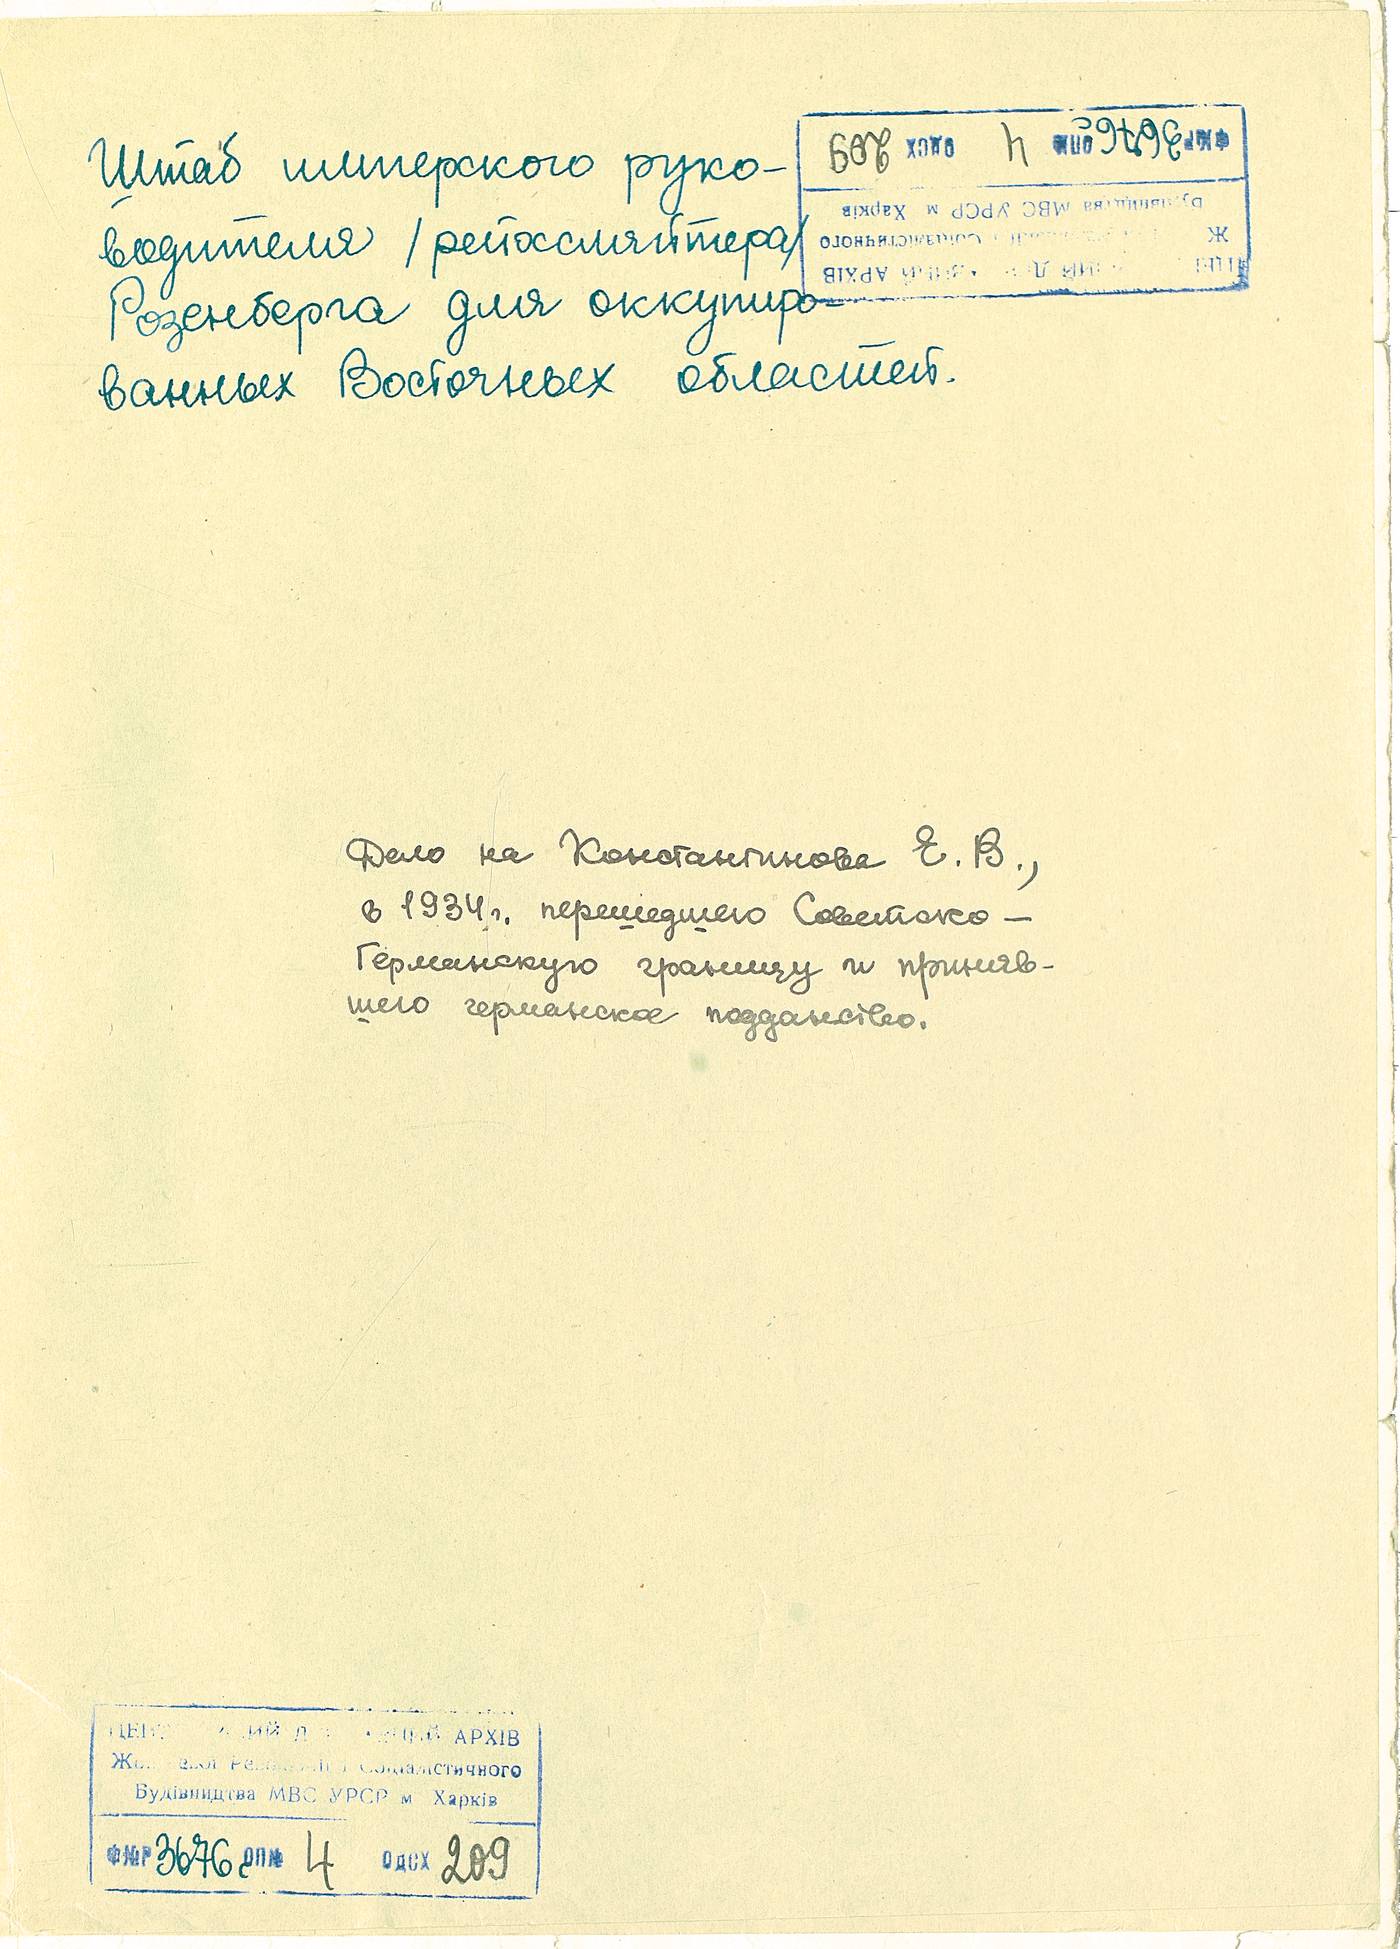 Штаб имперского руко-
водителя /рейхсляйтера/
Розенберга для оккупиро-
ванных Восточных областей.
Ф№Р 3676с ОП№ 4 ОДСХ 209
АРХІВ
Соціалістичного
Будівництва МВС УРСР м Харків
Дело на Константинова Е. В.,
в 1934г. перешедшего Советско-
Германскую границу и приняв-
шего германское подданство.
АРХІВ
Соціалістичного
Будівництва МВС УРСР м Харків
Ф№Р 3676с ОП№ 4 ОДСХ 209